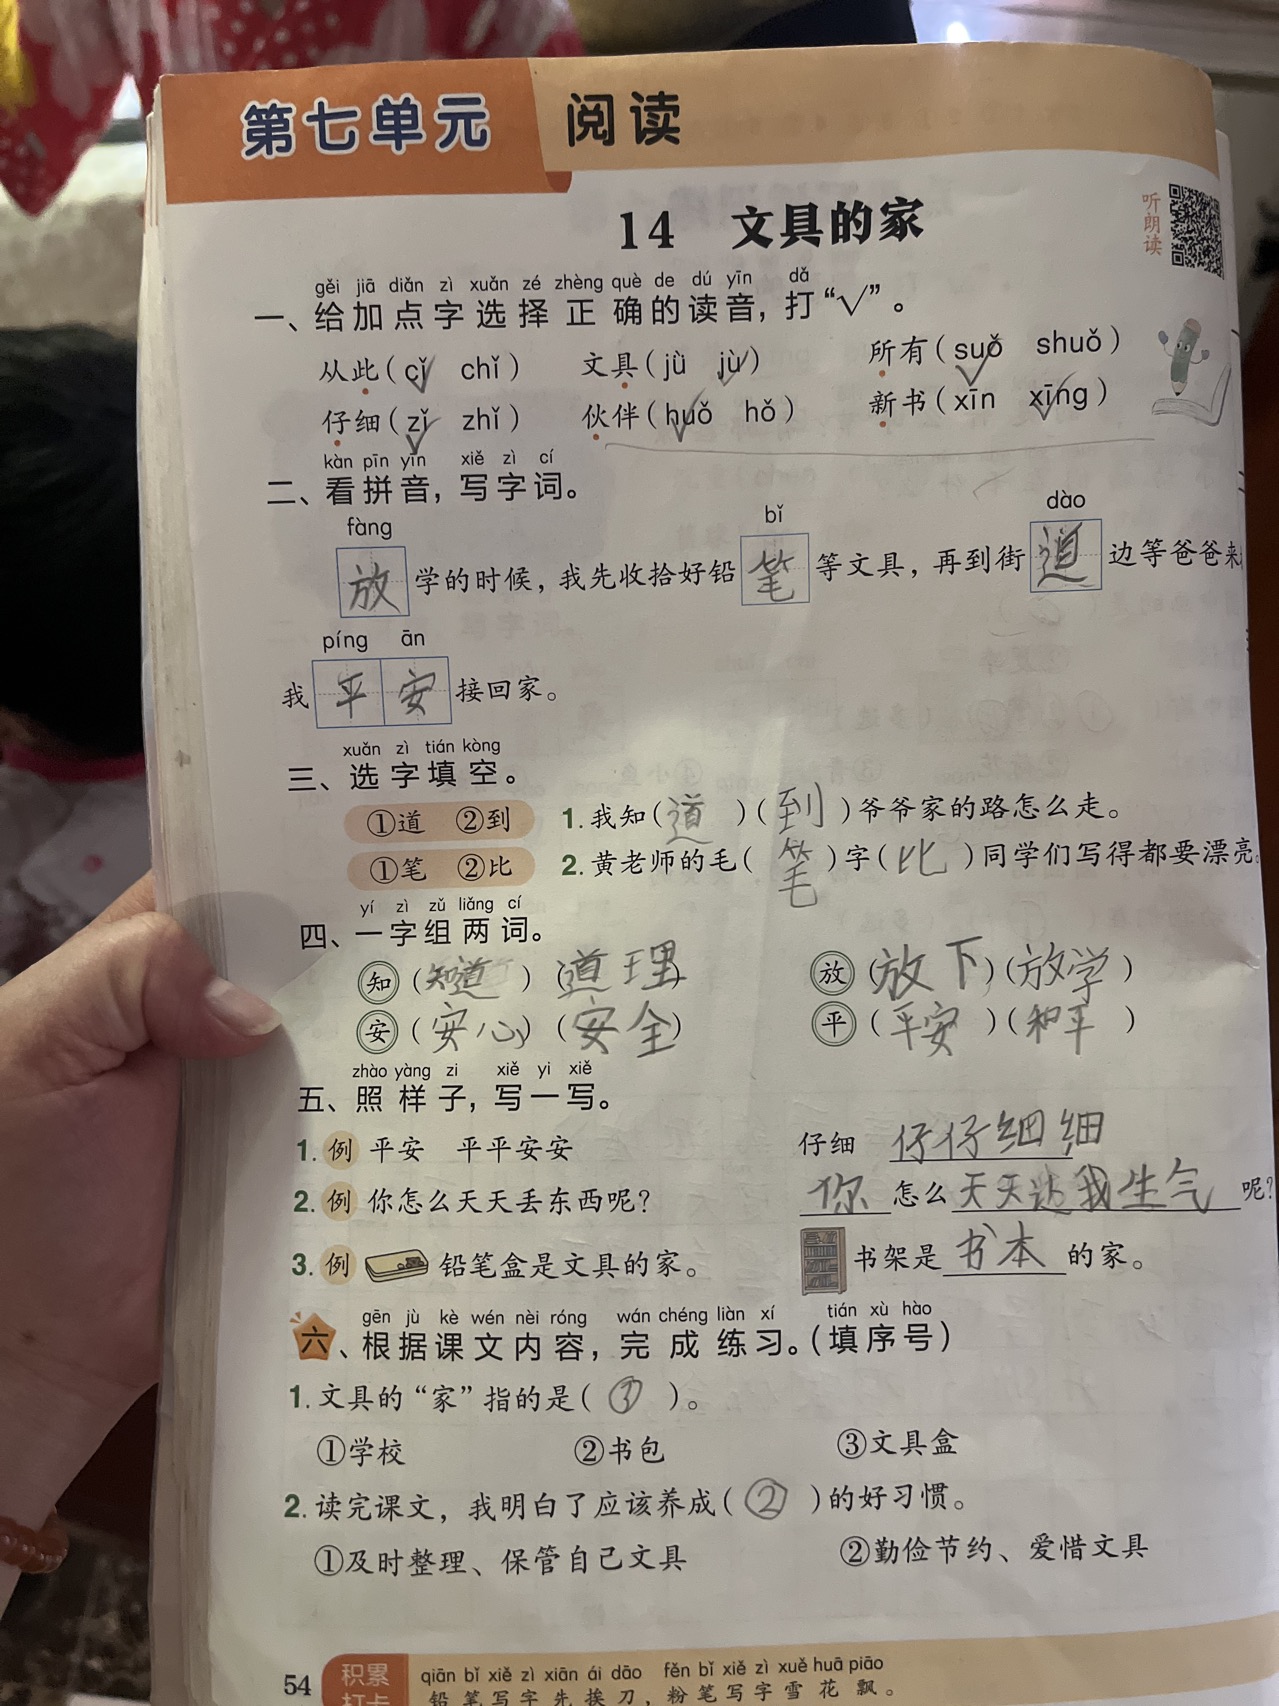 第七单元 阅读
14 文具的家
听朗读
gěi jiā diǎn zì xuǎn zé zhèng què de dú yīn dǎ
一、给加点字选择正确的读音，打“√”。
从此（cǐ chǐ） 文具（jù jù） 所有（suǒ shuǒ）
仔细（zǐ zhǐ） 伙伴（huǒ hǒ） 新书（xīn xīng）
kàn pīn yīn xiě zì cí
二、看拼音，写字词。
fàng bǐ dào
放学的时候，我先收拾好铅笔等文具，再到街道边等爸爸来
píng ān
我平安接回家。
xuǎn zì tián kòng
三、选字填空。
①道 ②到 1.我知（道）（到）爷爷家的路怎么走。
①笔 ②比 2.黄老师的毛（笔）字（比）同学们写得都要漂亮。
yí zì zǔ liǎng cí
四、一字组两词。
知（知道）（道理） 放（放下）（放学）
安（安心）（安全） 平（平安）（和平）
zhào yàng zi xiě yi xiě
五、照样子，写一写。
1.例 平安 平平安安 仔细 仔仔细细
2.例 你怎么天天丢东西呢？ 你怎么天天 我生气呢？
3.例 铅笔盒是文具的家。 书架是书本的家。
gēn jù kè wén nèi róng wán chéng liàn xí tián xù hào
六、根据课文内容，完成练习。（填序号）
1.文具的“家”指的是（③）。
①学校 ②书包 ③文具盒
2.读完课文，我明白了应该养成（②）的好习惯。
①及时整理、保管自己文具 ②勤俭节约、爱惜文具
54 积累打卡 qiān bǐ xiě zì xiān ái dāo fěn bǐ xiě zì xuě huā piāo
铅笔写字先挨刀，粉笔写字雪花飘。